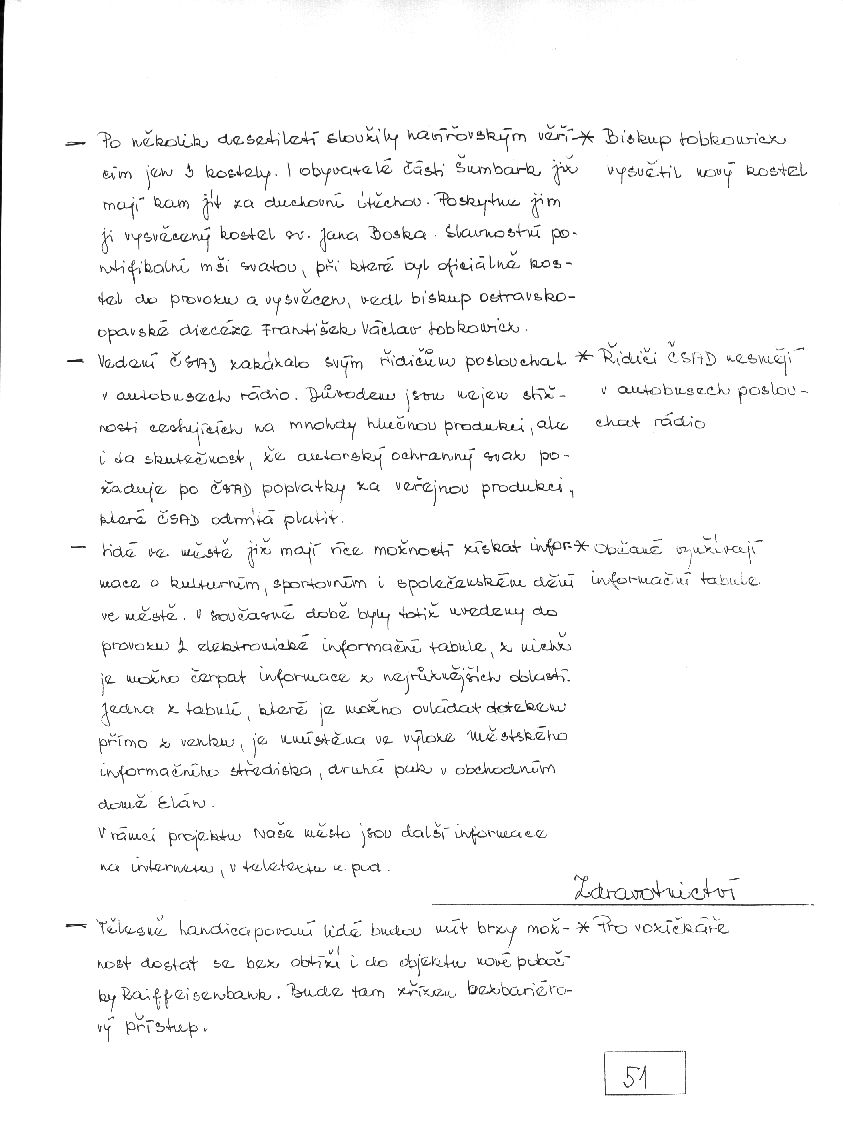 — Po několik desetiletí sloužily havířovským věří- * Biskup Lobkowicz
cím jen 3 kostely. I obyvatelé části Šumbark již vysvětil nový kostel
mají kam jít za duchovní útěchou. Poskytne jim
ji vysvěcený kostel sv. Jana Boska. Slavnostní po-
ntifikální mši svatou, při které byl oficiálně kos-
tel do provozu a vysvěcen, vedl biskup ostravsko-
opavské diecéze František Václav Lobkowicz.
— Vedení ČSAD zakázalo svým řidičům poslouchat * Řidiči ČSAD nesmějí
v autobusech rádio. Důvodem jsou nejen stíž- v autobusech poslou-
nosti cestujících na mnohdy hlučnou produkci, ale chat rádio
i ta skutečnost, že autorský ochranný svaz po-
žaduje po ČSAD poplatky za veřejnou produkci,
které ČSAD odmítá platit.
— Lidé ve městě již mají více možností získat infor- * Občané využívají
mace o kulturním, sportovním i společenském dění informační tabule
ve městě. V současné době byly totiž uvedeny do
provozu 2 elektronické informační tabule, z nichž
je možno čerpat informace z nejrůznějších oblastí.
Jedna z tabulí, které je možno ovládat dotekem
přímo z venku, je umístěna ve výloze Městského
informačního střediska, druhá pak v obchodním
domě Elán.
V rámci projektu Naše město jsou další informace
na internetu, v teletextu a.pod.
Zdravotnictví
— Tělesně handicapovaní lidé budou mít brzy mož- * Pro vozíčkáře
nost dostat se bez obtíží i do objektu nové poboč-
ky Raiffeisenbank. Bude tam zřízen bezbariéro-
vý přístup.
51